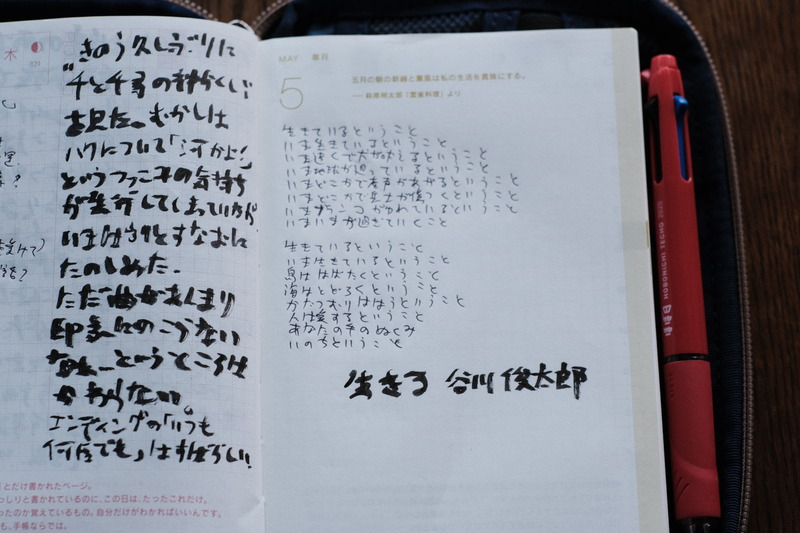 木
121
きのう久しぶりに
"千と千尋の神かくし"
を見た。むかしは
ハクについて「河かよ!」
というツッコミの気持ち
が先行してしまっていたが、
いまはわりとすなおに
たのしめた。
ただ曲があんまり
印象にのこらない
なぁ…というところは
かわらない。
エンディングの「いつも
何度でも」はすばらしい!
とだけ書かれたページ。
っしりと書かれているのに、この日は、たったこれだけ。
ったのか覚えているもの。自分だけがわかればいいんです。
も、手帳ならでは。
MAY 皐月
5
五月の朝の新緑と薫風は私の生活を貴族にする。
── 萩原朔太郎「雲雀料理」より
生きているということ
いま生きているということ
いま遠くで犬が吠えるということ
いま地球が廻っているということ
いまどこかで産声があがるということ
いまどこかで兵士が傷つくということ
いまブランコがゆれているということ
いまいまが過ぎていくこと
生きているということ
いま生きているということ
鳥ははばたくということ
海はとどろくということ
かたつむりははうということ
人は愛するということ
あなたの手のぬくみ
いのちということ
生きる 谷川 俊太郎
HOBONICHI TECHO 2020